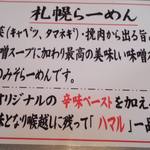 札幌らーめん
菜(キャベツ、タマネギ)・挽肉から出る旨
噌スープに加わり最高の美味しい味噌
のみそらーめんです。
オリジナルの辛味ペーストを加え
となり喉越しに残って「ハマル」一品